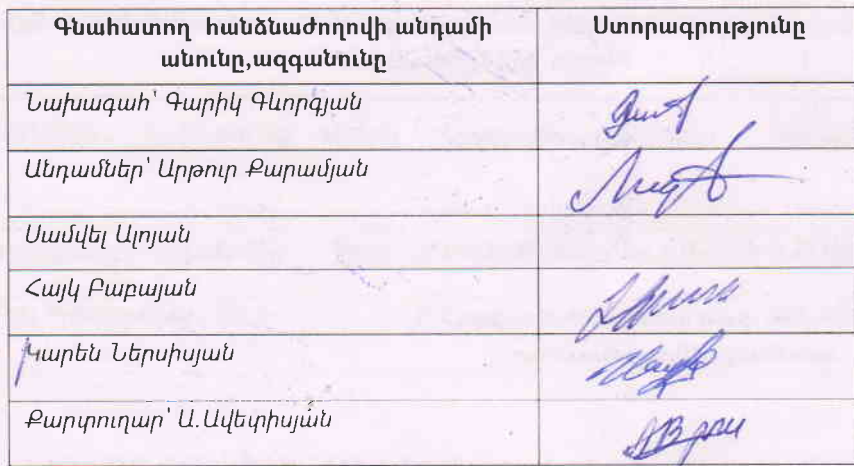 Գնահատող հանձնաժողովի անդամի Ստորագրությունը
անունը,ազգանունը
Նախագահ՝ Գարիկ Գևորգյան
Անդամներ՝ Արթուր Քարամյան
Սամվել Ալոյան
Հայկ Բաբայան
Կարեն Ներսիսյան
Քարտուղար՝ Ա.Ավետիսյան